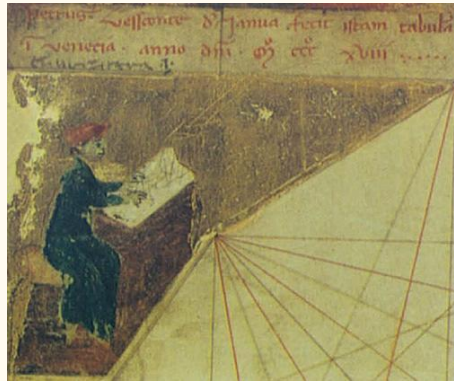 Petrus Vessconte d' Janua fecit istam tabulā
ī Venecia · anno dn̄i · m̊ ccc̊ xviii ·····